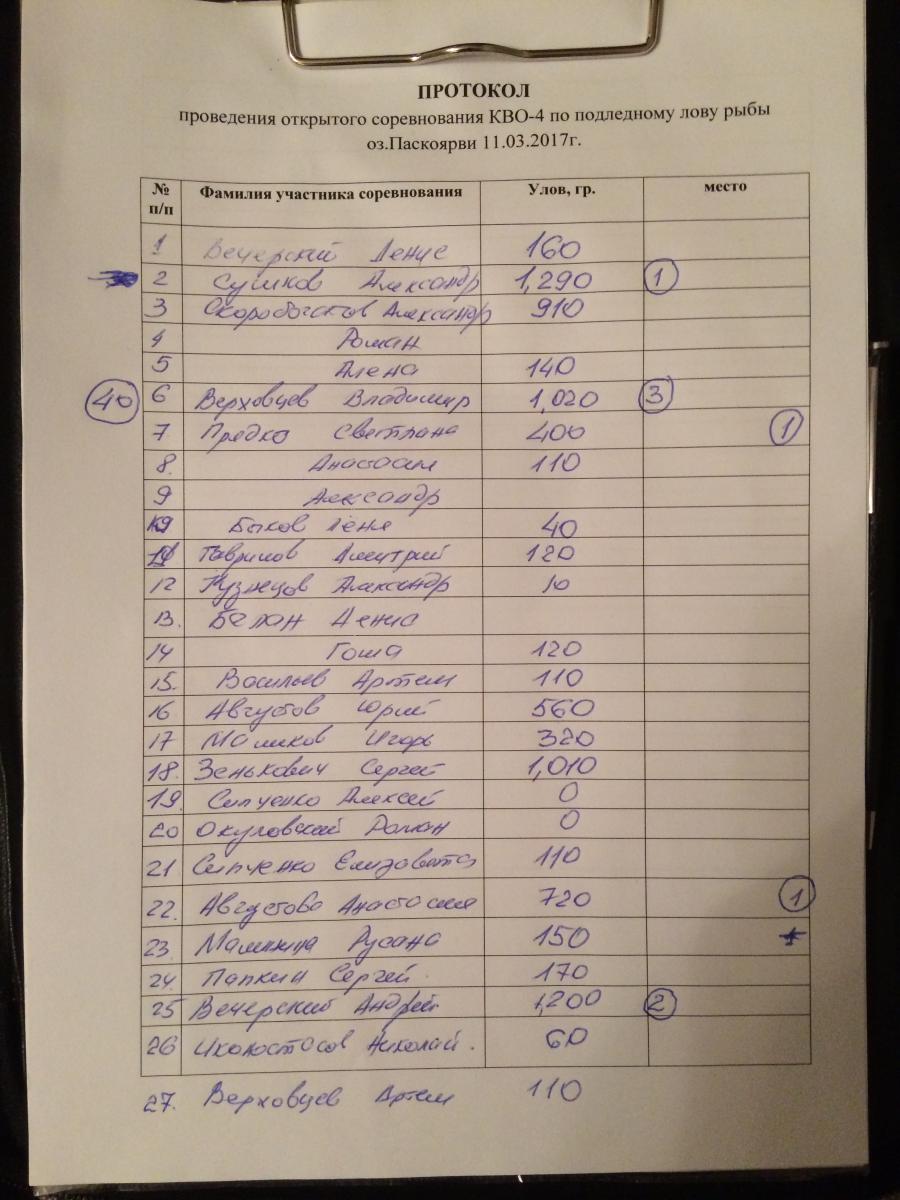 ПРОТОКОЛ
проведения открытого соревнования КВО-4 по подледному лову рыбы
оз.Паскоярви 11.03.2017г.
№ п/п Фамилия участника соревнования Улов, гр. место
1 Вечерский Денис 160
2 Сушков Александр 1,290 1
3 Скоробогатов Александр 910
4 Роман
5 Алена 140
40 6 Верховцев Владимир 1,020 3
7 Предко Светлана 400 1
8. Анастасия 110
9 Александр
Быков Леня 40
11 Гаврилов Дмитрий 120
12 Кузнецов Александр 10
13. Белан Денис
14 Гоша 120
15. Васильев Артем 110
16 Августов Юрий 560
17 Маликов Игорь 320
18. Зенькович Сергей 1,010
19. Сипченко Алексей 0
20 Окуловский Роман 0
21 Сипченко Елизавета 110
22. Августова Анастасия 720 1
23. 150
24. Папкин Сергей 170
25 Вечерский Андрей 1,200 2
26 Иконостасов Николай. 60
27. Верховцев Артем 110